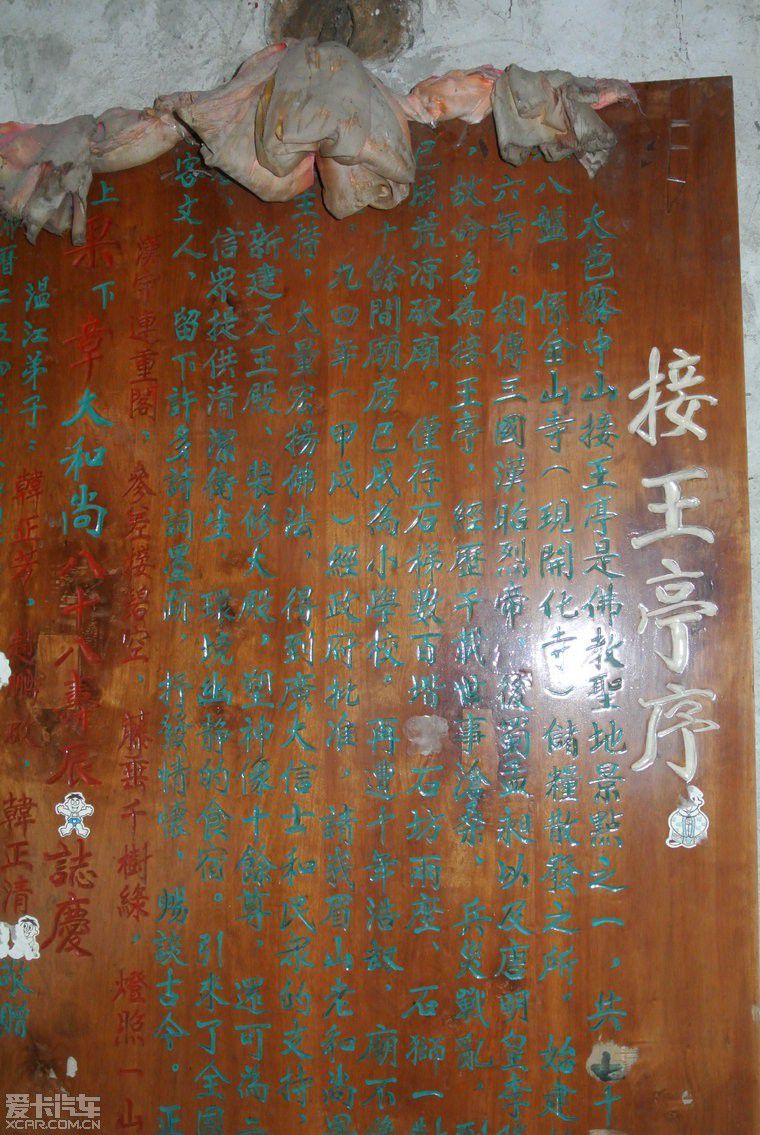 接王亭序
大邑霧中山接王亭是佛教聖地景點之一，共七十
八盤，係金山寺（現開化寺）儲糧散發之所，始建
六年，相傳三國漢昭烈帝、後蜀孟昶以及唐明皇李
，故命名為接王亭，經歷千載世事滄桑、兵災戰亂，到
已成荒凉破廟，僅存石梯數百堦，石坊兩座、石獅一對
十餘間廟房已成為小學校。再遭十年浩劫，廟不像
九四年（甲戌）經政府批准，請峨眉山老和尚果
主持，大量宏揚佛法，得到廣大信士和民衆的支持，
新建天王殿、裝修大殿，塑神像十餘尊，還可為二
、信衆提供清潔衛生 環境幽静的食宿。引來了全國
客文人，留下許多詩詞墨跡，抒發情懷、暢談古今。正
漢宇連重閣，參差接碧空，藤垂千樹綠，燈照一山
上果下章大和尚八十八壽辰 誌慶
温江弟子：韓正芳，韓正清 敬贈
佛曆二五四
爱卡汽车
XCAR.COM.CN